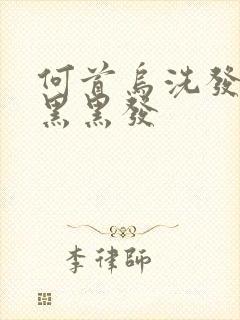 何首烏洗發
黑黑發
李律師